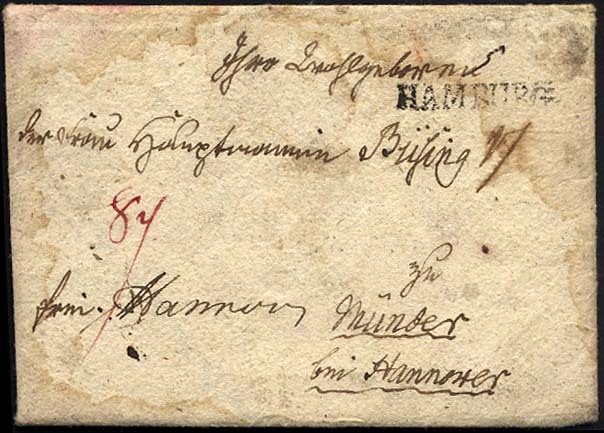 Ihro Wohlgeboren
HAMBURG
der Frau Hauptmannin Büsing
zu
frei Hannov
Münder
bei Hannover